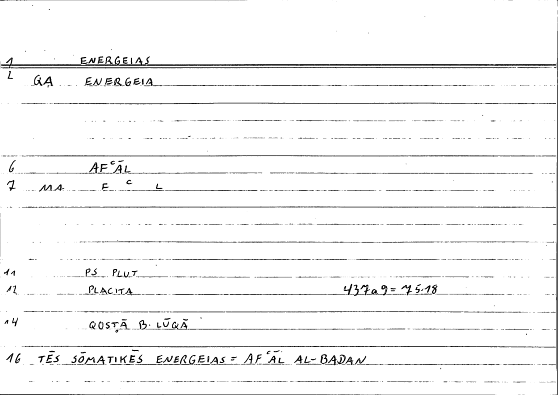 1 ENERGEIAS
2 QA ENERGEIA
6 AFʿĀL
7 MA F ʿ L
11 PS PLUT
12 PLACITA 437a9 = 75.18
14 QOSṬĀ B. LŪQĀ
16 TĒS SŌMATIKĒS ENERGEIAS = AFʿĀL AL-BADAN